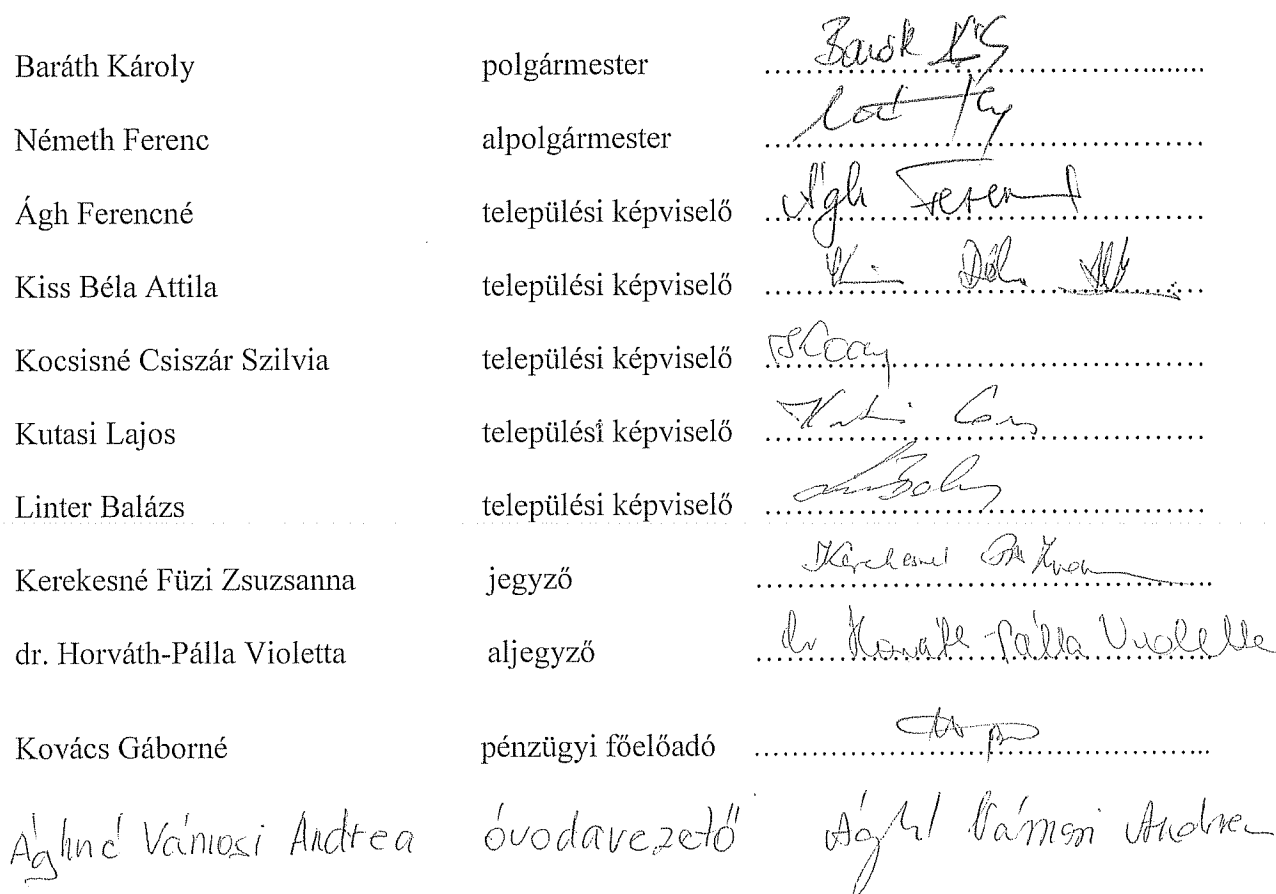 Baráth Károly polgármester ....................
Németh Ferenc alpolgármester ....................
Ágh Ferencné települési képviselő .................... Ágh Ferencné
Kiss Béla Attila települési képviselő .................... Kiss Béla
Kocsisné Csiszár Szilvia települési képviselő ....................
Kutasi Lajos települési képviselő ....................
Linter Balázs települési képviselő ....................
Kerekesné Füzi Zsuzsanna jegyző .................... Kerekesné
dr. Horváth-Pálla Violetta aljegyző .................... dr Horváth-Pálla Violetta
Kovács Gáborné pénzügyi főelőadó ....................
Ághné Vámosi Andrea óvodavezető Ághné Vámosi Andrea